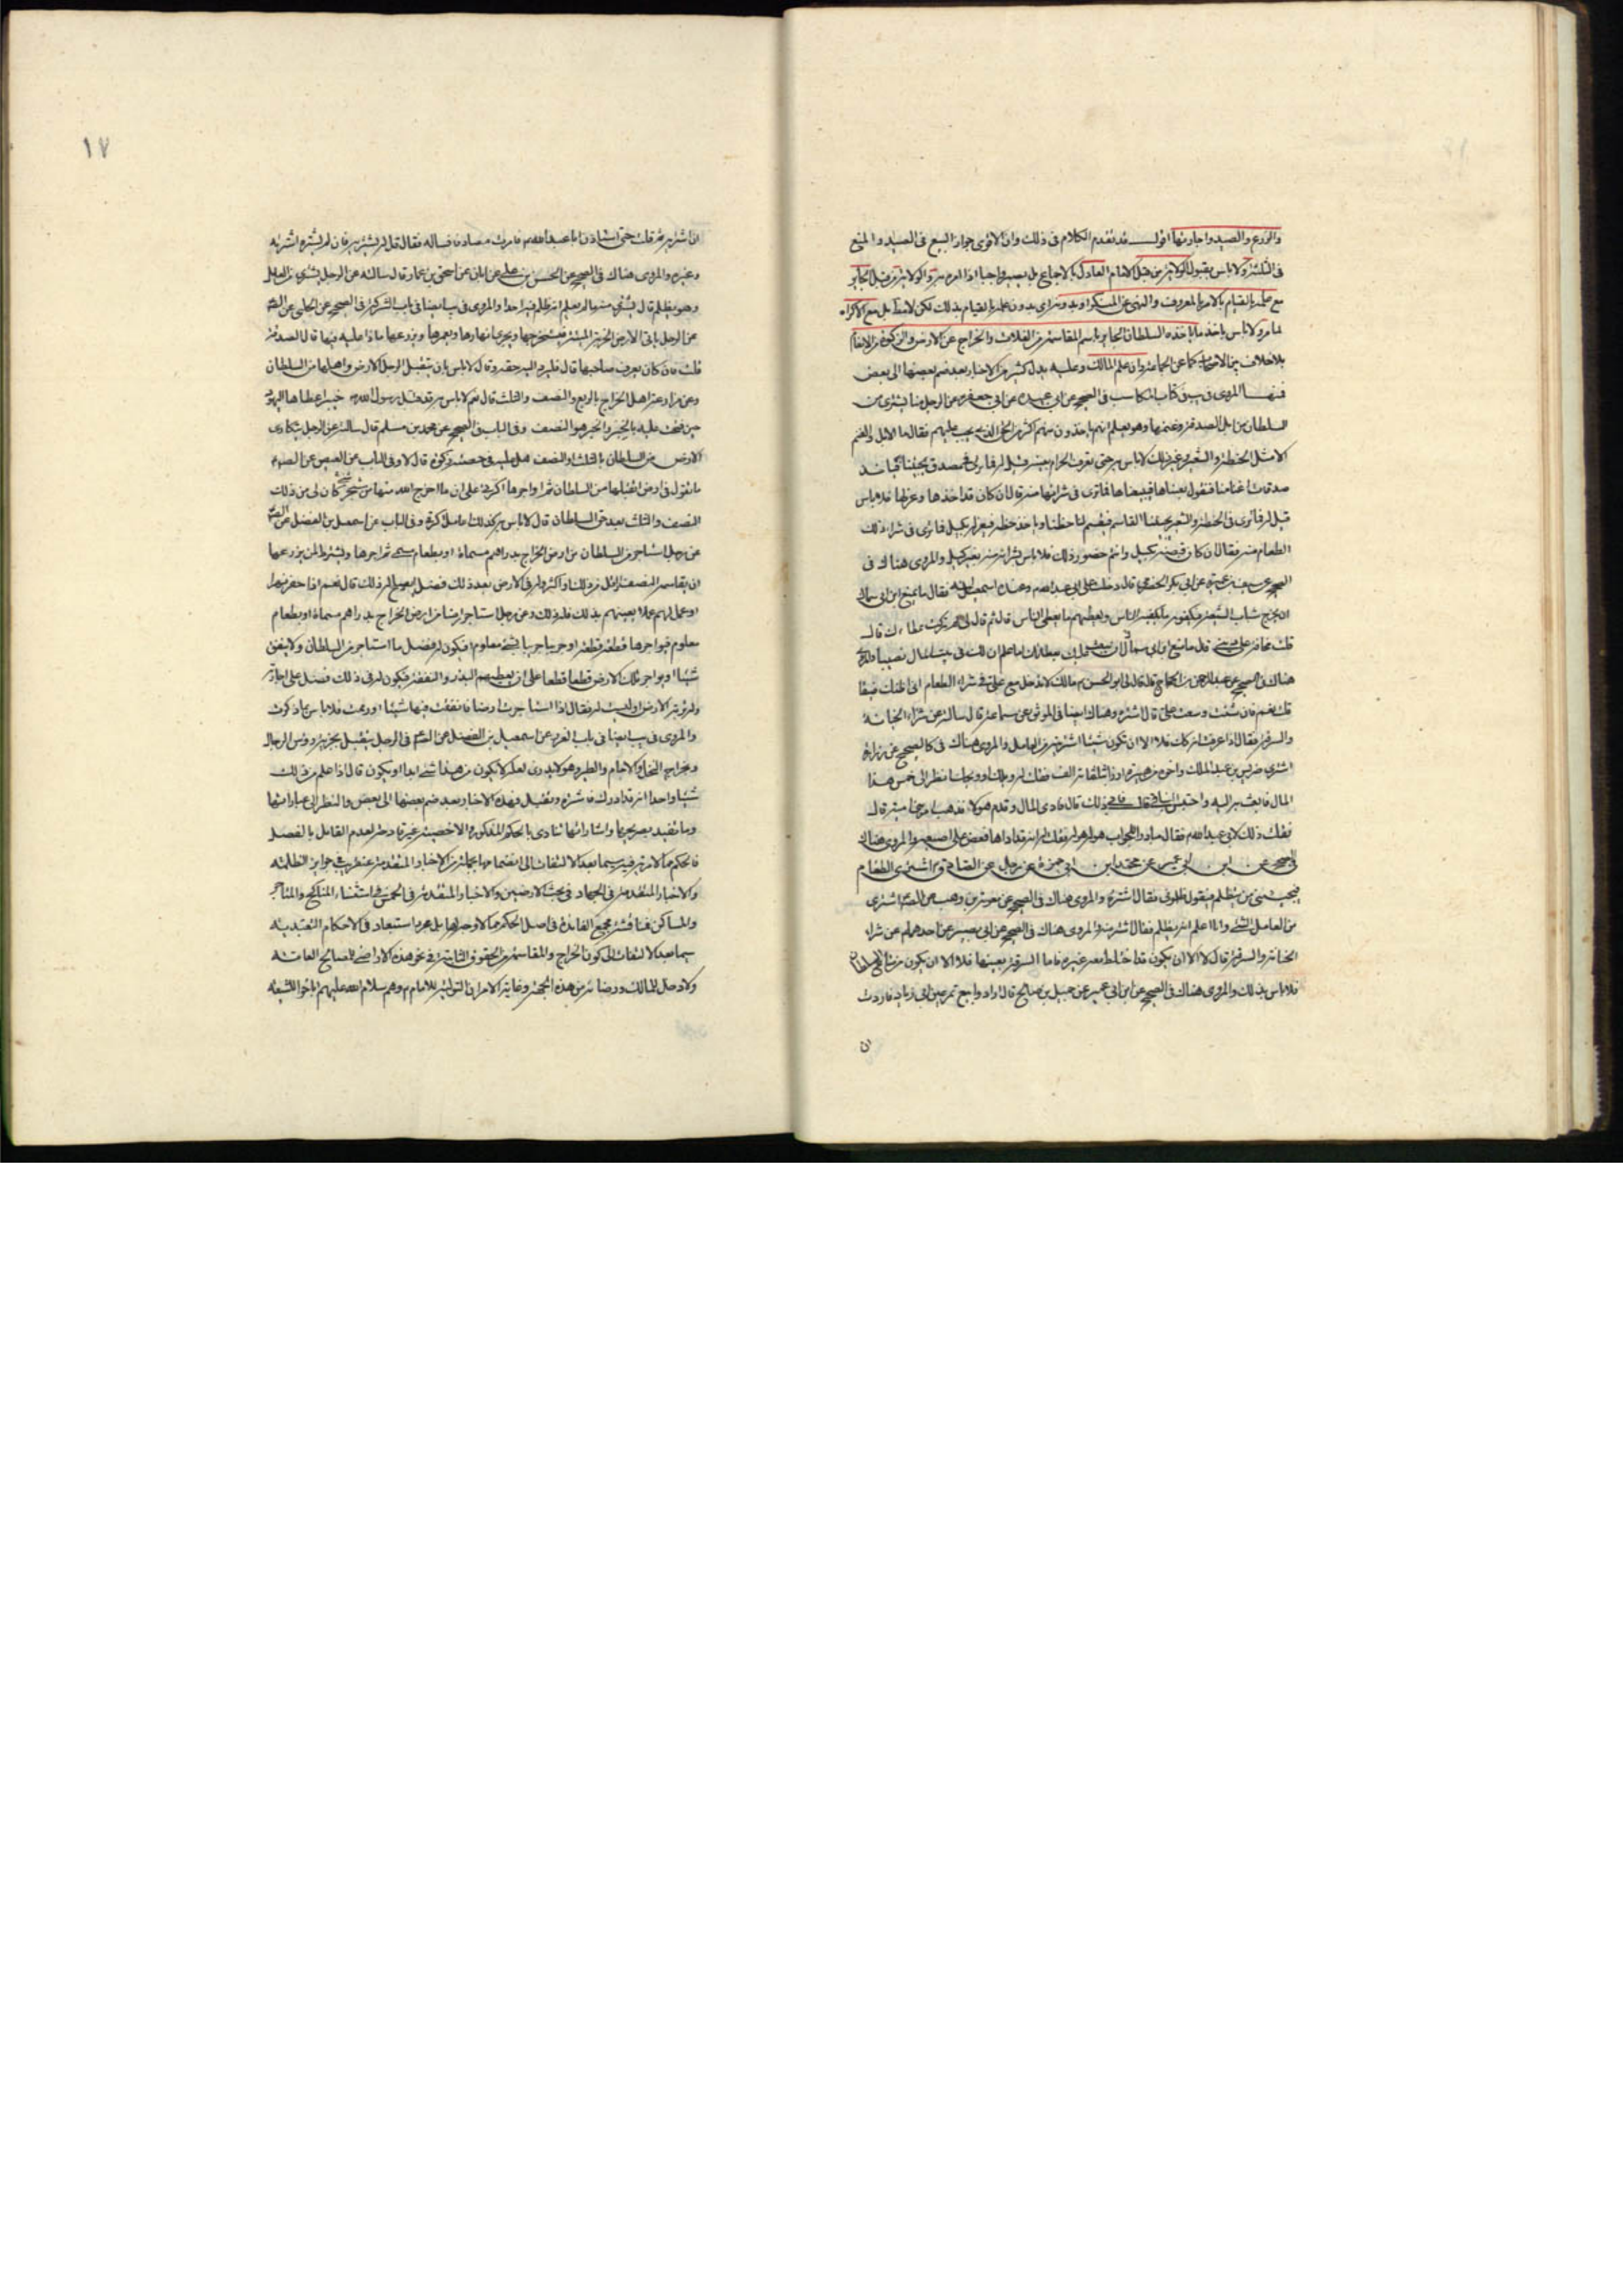 والزرع والصيد واجارتها اقول قد تقدم الكلام فى ذلك وان الاقوى جواز البيع فى الصيد والمنع
فى الثلثة ولا باس بقبول الولاية من قبل الامام العادل بالاجماع بل يصير واجبا اذا الزم به والولاية من قبل الجاير
مع علمه بالقيام بالامر بالمعروف والنهى عن المنكر او بدونه اى بدون علمه بالقيام بذلك لكن لا مطلقا بل مع الاكراه
لما مر ولا باس باخذ ما ياخذه السلطان الجاير باسم المقاسمة من الغلات والخراج عن الارض والزكوة من الانعام
بلا خلاف بين الاصحاب كما عن الجماعة وان علم المالك وعليه يدل كثير من الاخبار بعد ضم بعضها الى بعض
فمنها المروى فى يب فى كتاب المكاسب فى الصحيح عن ابى عبيدة عن ابى جعفر عن الرجل منا يشترى من
السلطان من ابل الصدقة وغنمها وهو يعلم انهم ياخذون منهم اكثر من الحق الذى يجب عليهم فقال ما الابل والغنم
الا مثل الحنطة والشعير وغير ذلك لا باس به حتى تعرف الحرام بعينه قيل له فما ترى فى مصدق يجيئنا فياخذ
صدقات اغنامنا فنقول بعناها فيبيعناها فما ترى فى شرائها منه قال ان كان قد اخذها وعزلها فلا باس
قيل له فما ترى فى الحنطة والشعير يجيئنا القاسم فيقسم لنا حظنا وياخذ حظه فيعزله بكيل فما ترى فى شراء ذلك
الطعام منه فقال ان كان قبضه بكيل وانتم حضور ذلك فلا باس بشرائه منه بغير كيل والمروى هناك فى
الصحيح عن سيف بن عميرة عن ابى بكر الحضرمى قال دخلت على ابى عبد الله وعنده اسمعيل ابنه فقال ما يمنع ابن ابى سماك
ان يخرج شباب الشيعة فيكفونه ما يكفيه الناس ويعطيهم ما يعطى الناس قال ثم قال لى لم تركت عطاءك قال
قلت مخافة على دينى قال ما منع ابن ابى سماك ان يبعث اليك بعطائك اما علم ان لك فى بيت المال نصيبا والمروى
هناك فى الصحيح عن عبد الرحمن بن الحجاج قال قال لى ابو الحسن مالك لا تدخل مع على فى شراء الطعام انى اظنك ضيقا
قلت نعم فان شئت وسعت على قال اشتره وهناك ايضا فى الموثق عن سماعة قال سالته عن شراء الخيانة
والسرقة فقال اذا عرفت انه كذلك فلا الا ان يكون شيئا اشتريته من العامل والمروى هناك فى كالصحيح عن زرارة
اشترى ضريس بن عبد الملك واخوه من هبيرة ارزا بثلثمائة الف فقلت له ويلك او ويحك انظر الى خمس هذا
المال فابعث به اليه واحتبس الباقى قال فابى ذلك قال فادى المال وقدم هؤلاء فذهب امر بنى امية قال
فقلت ذلك لابى عبد الله فقال مبادرا للجواب هو له هو له فقلت له انه قد اداها فعض على اصبعه والمروى هناك
فى الصحيح عن ابن ابى عمير عن محمد بن ابى حمزة عن رجل عن الصادق اشترى الطعام
فيجيئنى من يتظلم فيقول ظلمونى فقال اشتره والمروى هناك فى الصحيح عن معوية بن وهب عن الصادق اشترى
من العامل الشئ وانا اعلم انه يظلم فقال اشتر منه والمروى هناك فى الصحيح عن ابى بصير عن احدهما عن شراء
الخيانة والسرقة قال لا الا ان يكون قد اختلط معه غيره فاما السرقة بعينها فلا الا ان يكون من متاع السلطان
فلا باس بذلك والمروى هناك فى الصحيح عن ابن ابى عمير عن جميل بن صالح قال ارادوا بيع تمر عين ابى زياد فاردت
ان
١٧
ان اشتريه ثم قلت حتى استاذن ابا عبد الله فامرت مصادفا فساله فقال قل له يشتريه فان لم يشتره اشتراه
غيره والمروى هناك فى الصحيح عن الحسن بن على عن ابان عن اسحق بن عمار قال سالته عن الرجل يشترى من العامل
وهو يظلم قال يشترى منه ما لم يعلم انه ظلم فيه احدا والمروى فى يب ايضا فى باب الشركة فى الصحيح عن الحلبى عن الصادق
عن الرجل ياتى الارض الخربة الميتة فيستخرجها ويجرى انهارها ويعمرها ويزرعها ماذا عليه فيها قال الصدقة
قلت فان كان يعرف صاحبها قال فليرد اليه حقه وقال لا باس بان يتقبل الرجل الارض واهلها من السلطان
وعن مزارعة اهل الخراج بالربع والنصف والثلث قال نعم لا باس به قد قبل رسول الله خيبر اعطاها اليهود
حين فتحت عليه بالخبر والخبر هو النصف وفى الباب فى الصحيح عن محمد بن مسلم قال سالته عن الرجل يتكارى
الارض من السلطان بالثلث او النصف هل عليه فى حصته زكوة قال لا وفى الباب عن الفيض عن الصادق
ما تقول فى ارض اتقبلها من السلطان ثم اواجرها اكرتى على ان ما اخرج الله منها من شئ كان لى من ذلك
النصف والثلث بعد حق السلطان قال لا باس به كذلك اعامل اكرتى وفى الباب عن اسمعيل بن الفضل عن الصادق
عن رجل استاجر من السلطان من ارض الخراج بدراهم مسماة او بطعام مسمى ثم اجرها وشرط لمن يزرعها
ان يقاسمه النصف او اقل من ذلك او اكثر وله فى الارض بعد ذلك فضل ايصلح له ذلك قال نعم اذا حفر نهرا
او عمل لهم عملا يعينهم بذلك فله ذلك وعن رجل استاجر ارضا من ارض الخراج بدراهم مسماة او بطعام
معلوم فيواجرها قطعة قطعة او جريبا جريبا بشئ معلوم افيكون له فضل ما استاجر من السلطان ولا ينفق
شيئا او يواجر تلك الارض قطعا قطعا على ان يعطيهم البذر والنفقة فيكون له فى ذلك فضل على اجارته
وله تربة الارض او ليست له فقال اذا استاجرت ارضا فانفقت فيها شيئا او رممت فلا باس بما ذكرت
والمروى فى يب ايضا فى باب الغرر عن اسمعيل بن الفضل عن الصادق فى الرجل يتقبل بجزية رؤس الرجال
وبخراج النخل والاجام والطير وهو لا يدرى لعله لا يكون من هذا شئ ابدا او يكون قال اذا علم من ذلك
شيئا واحدا انه قد ادرك فاشتره وتقبل فهذه الاخبار بعد ضم بعضها الى بعض والنظر الى عباراتها
وما تفيد بصريحها واشاراتها تنادى بالحكم المذكور والاخصية غير قادحة لعدم القائل بالفصل
فالحكم مما لا مرية فيه سيما بعد الالتفات الى انضمامها بجملة من الاخبار المتقدمة عنقريب فى جوايز الظلمة
والاخبار المتقدمة فى الجهاد فى بحث الارضين والاخبار المتقدمة فى الخمس فى استثناء المناكح والمتاجر
والمساكن فمناقشة مجمع الفائدة فى اصل الحكم مما لا وجه لها بل مجرد استبعاد فى الاحكام التعبدية
سيما بعد الالتفات الى كون الخراج والمقاسمة من الحقوق الثابتة فى نحو هذه الاراضى للمصالح العامة
ولا دخل للمالك ورضائه من هذه الجهة وغاية الامر ان التولية للامام وهم سلام الله عليهم اباحوا للشيعة